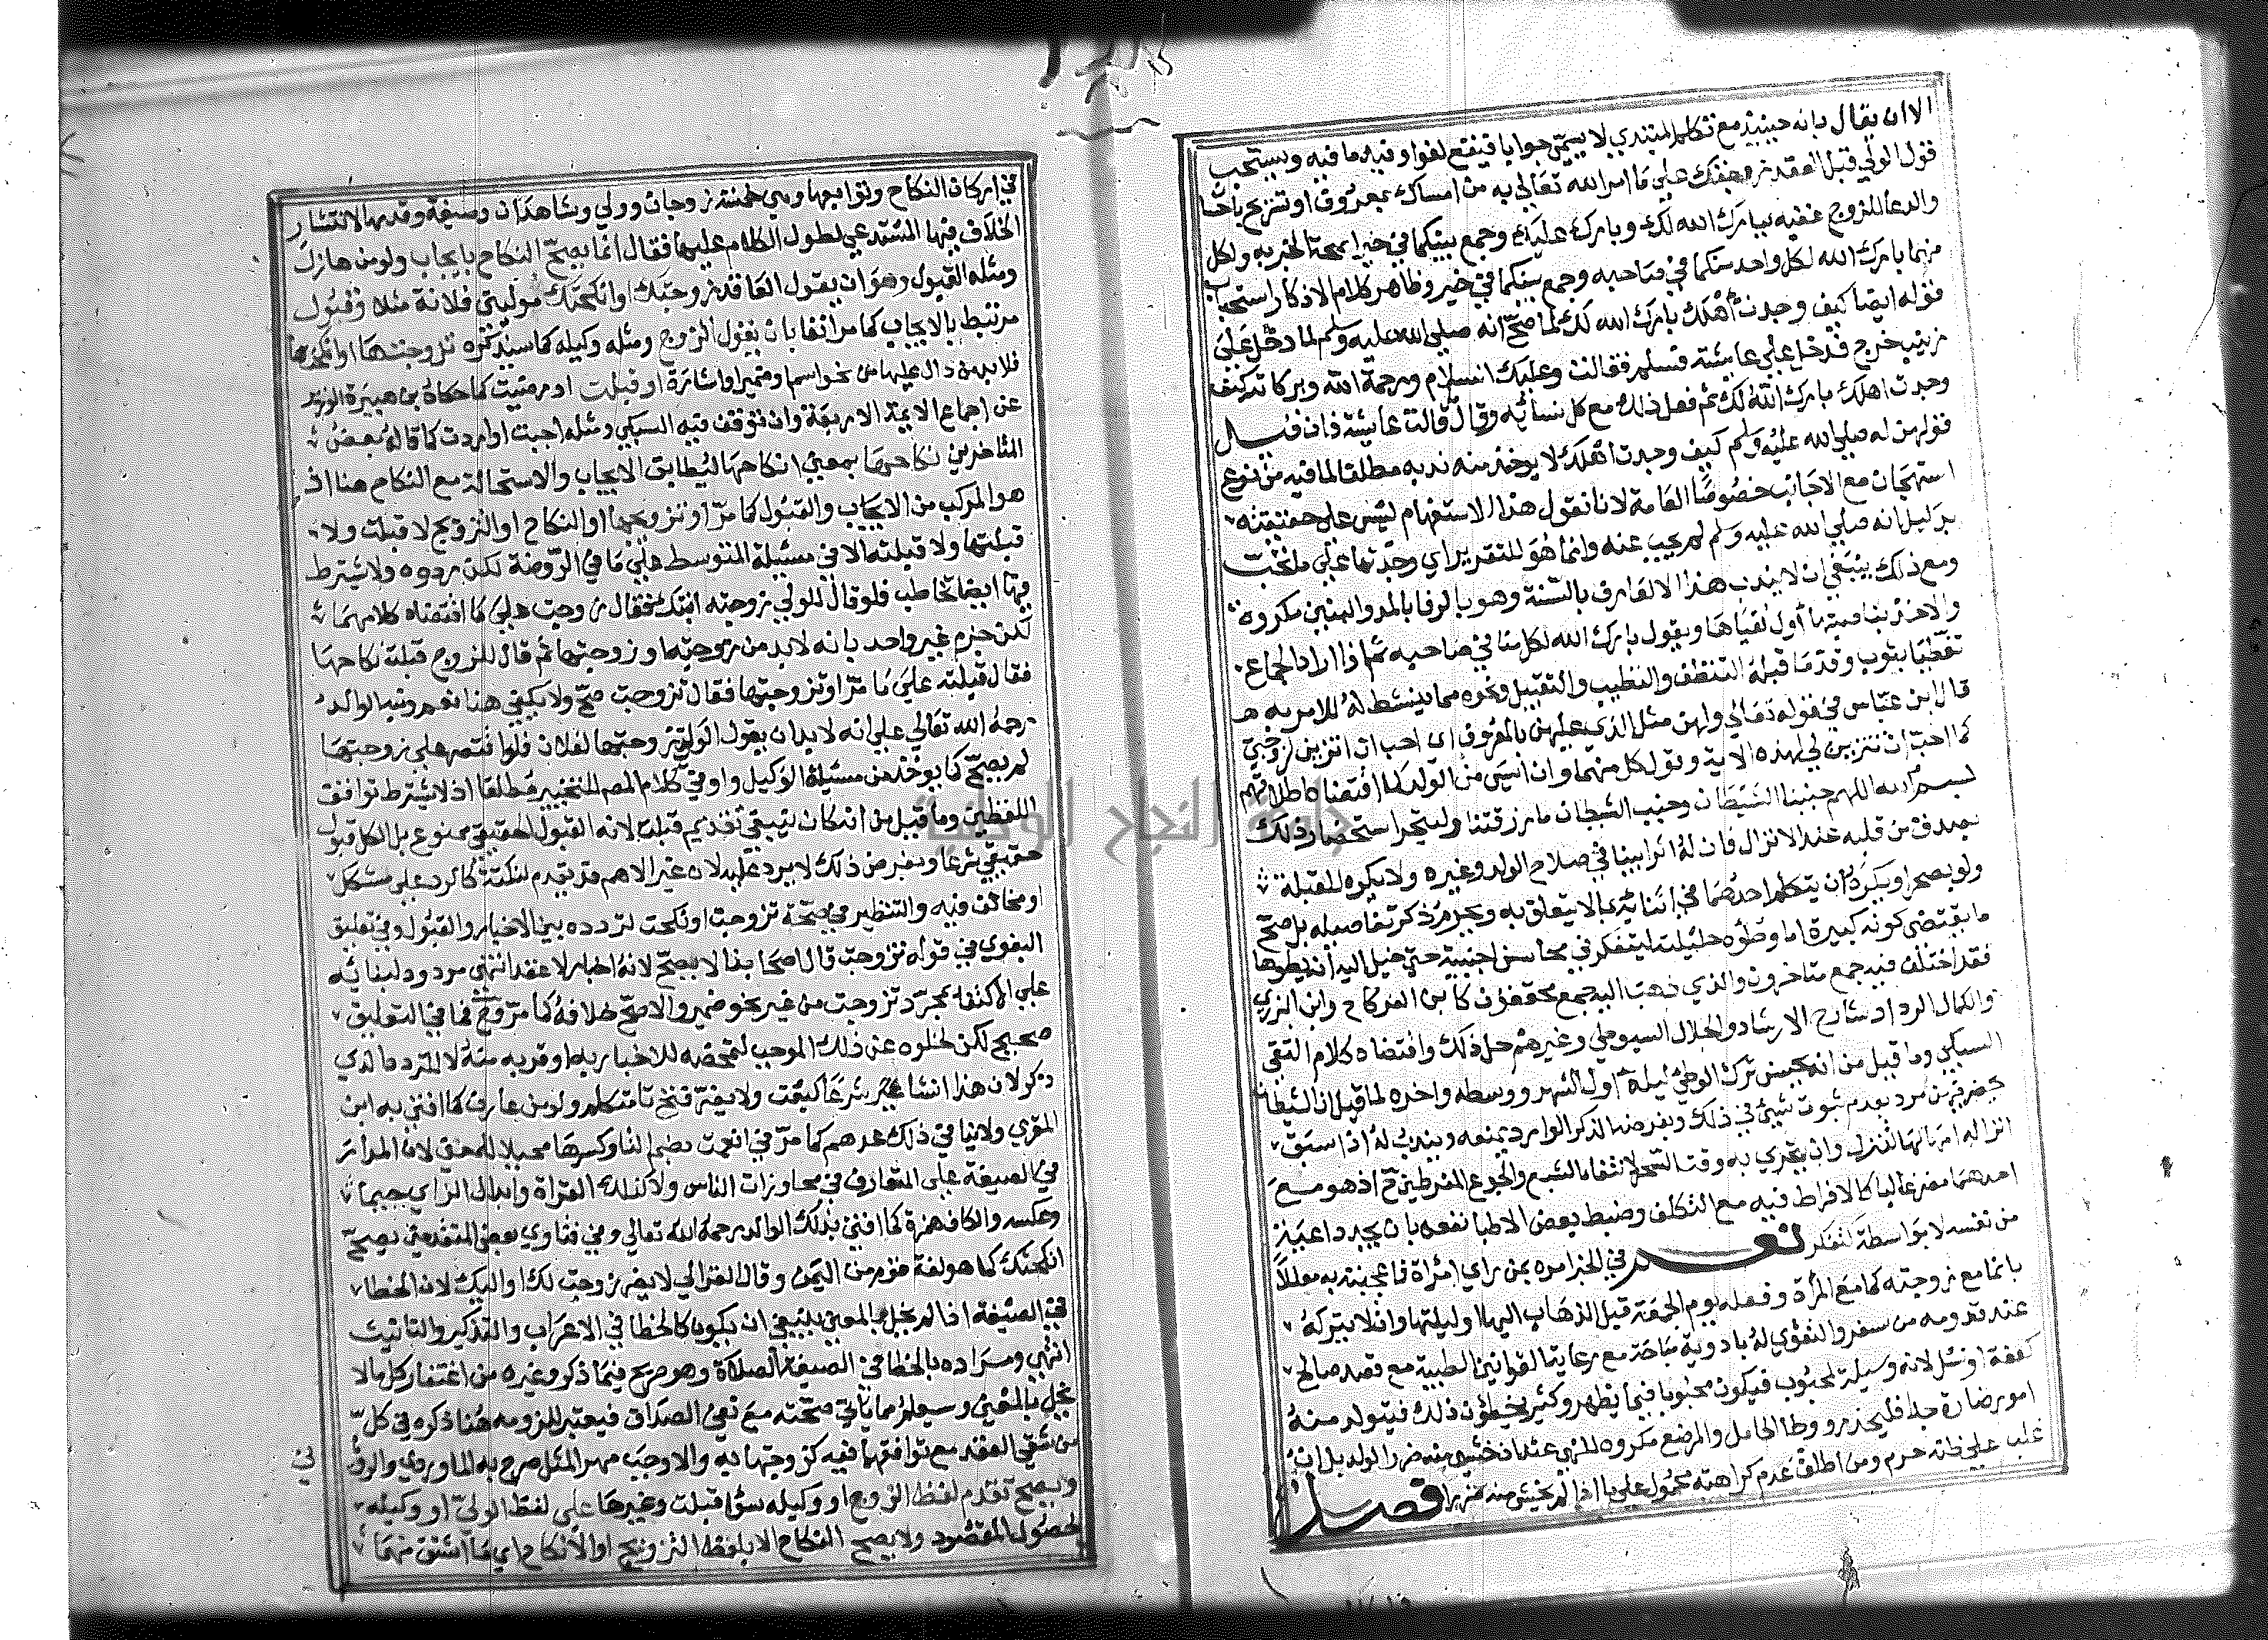 الا ان يقال بانه حينئذ مع تكلم المبتدي لا يسمى جوابا فيقع لغوا وفيه ما فيه ويستحب
قول الولي قبل العقد زوجتك على ما امر الله تعالى به من امساك بمعروف او تسريح باحسا
والدعا للزوج عقبه ببارك الله لك وبارك عليك وجمع بينكما في خير لصحة الخبر به ولكل
منهما بارك الله لكل واحد منكما في صاحبه وجمع بينكما في خير وظاهر كلام الاذكار استحباب
قوله ايضا كيف وجدت أهلك بارك الله لك لما صح انه صلى الله عليه وسلم لما دخل على
زينب خرج فدخل على عايشة فسلم فقالت وعليك السلام ورحمة الله وبركاته كيف
وجدت اهلك بارك الله لك ثم فعل ذلك مع كل نسائه وقال قالت عايشة فان قيل
قولهن له صلى الله عليه وسلم كيف وجدت أهلك لا يوخذ منه ندبه مطلقا لما فيه من نوع
استهجان مع الاجانب خصوصا العامة لانا نقول هذا الاستفهام ليس على حقيقته
بدليل انه صلى الله عليه وسلم لم يجب عنه وانما هو للتقرير اي وجدتها على ما تحب
ومع ذلك ينبغي ان لا يندب هذا الا لعارف بالسنة وهو بالرفا بالمد والبنين مكروه
والاخذ بناصيتها أول لقياها ويقول بارك الله لكل منا في صاحبه ثم اذا اراد الجماع
تغطيا بثوب وقدما قبله التنظف والتطيب والتقبيل ونحوه مما ينشط له للامر به
قال ابن عباس في قوله تعالى ولهن مثل الذي عليهن بالمعروف اي احب ان اتزين لزوجتي
كما احب ان تتزين لي لهذه الاية وقول كل منهما وان أيس من الولد كما اقتضاه اطلاقهم
بسم الله اللهم جنبنا الشيطان وجنب الشيطان ما رزقتنا وليتحرا استحضار ذلك
بصدق من قلبه عند الانزال فان له اثرا بينا في صلاح الولد وغيره ولا يكره للقبلة
ولو بصحرا ويكره ان يتكلم احدهما في اثنائه بما لا يتعلق به ويحرم ذكر تفاصيله بل صح
ما يقتضي كونه كبيرة اما وطؤه حليلته ليتفكر في محاسن اجنبية حتى خيل اليه انه يطوها
فقد اختلف فيه جمع متاخرون والذي ذهب اليه جمع محققون كابن الفركاح وابن البزري
والكمال الرداد شارح الارشاد والجلال السيوطي وغيرهم حل ذلك واقتضاه كلام التقي
السبكي وما قيل من انه يحسن ترك الوطئ ليلة اول الشهر ووسطه واخره لما قيل ان الشيطان
يحضر فيهن مردود بعدم ثبوت شيئ في ذلك وبفرضه الذكر الوارد يمنعه ويندب له اذا سبق
انزاله امهالها لتنزل وان يتحرى به وقت السحر لانتفا الشبع والجوع المفرطين ح اذ هو مع
احدهما مضر غالبا كالافراط فيه مع التكلف وضبط بعض الاطبا نفعه بان يجد داعية
من نفسه لا بواسطة تفكر نعم في الخبر امره بمن راي امراة فاعجبته به معللا
بانما مع زوجته كما مع المراة وفعله يوم الجمعة قبل الذهاب اليها او ليلتها وان لا يتركه
عند قدومه من سفر والتقوي له بادوية مباحة مع رعاية القوانين الطبية مع قصد صالح
كعفة او نسل لانه وسيلة لمحبوب فيكون محبوبا فيما يظهر وكثير يخطئون ذلك فيتولد منه
امور ضارة جدا فليحذر ووطا الحامل والمرضع مكروه للنهي عنه ان خشي منه ضرر الولد بل ان
غلب على ظنه حرم ومن اطلق عدم كراهته محمول على ما اذا لم يخش منه ضررا فصل
في اركان النكاح وتوابعها وهي خمسة زوجان وولي وشاهدان وصيغة وقدمها لانتشار
الخلاف فيها المستدعي لطول الكلام عليها فقال انما يصح النكاح بايجاب ولو من هازل
ومثله القبول وهو ان يقول العاقد زوجتك او انكحتك موليتي فلانة مثلا وقبول
مرتبط بالايجاب كما مر انفا بان يقول الزوج ومثله وكيله كما سيذكره تزوجتها او نكحتها
فلا بد من دال عليها من نحو اسم او ضمير او اشارة او قبلت او رضيت كما حكاه بن هبيرة الوزير
عن اجماع الايمة الاربعة وان توقف فيه السبكي ومثله احببت او اردت كما قاله بعض
المتاخرين نكاحها بمعنى انكاحها ليطابق الايجاب والاستحالة مع النكاح هنا اذ
هو المركب من الايجاب والقبول كما مر او تزويجها او النكاح او التزويج لا قبلت ولا
قبلتها ولا قبلته الا في مسيلة المتوسط على ما في الروضة لكن ردوه ولا يشترط
فيها ايضا تخاطب فلو قال للولي زوجته ابنتك فقال زوجت على ما اقتضاه كلامهما
لكن جزم غير واحد بانه لا بد من زوجته او زوجتها ثم قال للزوج قبلت نكاحها
فقال قبلته على ما مر او تزوجتها فقال تزوجت صح ولا يكفي هنا نعم ونبه الوالد
رحمه الله تعالى على انه لا بد ان يقول الولي زوجتها لفلان فلو اقتصر على زوجتها
لم يصح كما يوخذ من مسيلة الوكيل واو في كلام المص للتخيير مطلقا اذ لا يشترط توافق
اللفظين وما قيل من انه كان ينبغي تقديم قبلت لانه القبول الحقيقي ممنوع بل الكل قبول
حقيقي شرعا وبفرض ذلك لا يرد عليه لان غير الاهم قد يقدم لنكتة كالرد على مشكل
او مخالف فيه والتنظير في صحة تزوجت او نكحت لتردده بين الاخبار والقبول وفي تعليق
البغوي في قوله تزوجت قال اصحابنا لا يصح لانه اخبار لا عقد انتهى مردود لبنائه
على الاكتفا بمجرد تزوجت من غير نحو ضمير والاصح خلافه كما مر وح فما في التعليق
صحيح لكن لخلوه عن ذلك الموجب لتمحضه للاخبارية او قربه منه لا للتردد الذي
ذكر لان هذا انشا شرعا كبعت ولا يضر فتح تا متكلم ولو من عارف كما افتى به ابن
المقري ولا ينافي ذلك عدهم كما مر في انعمت بضم التا وكسرها محيلا للمعنى لان المدار
في الصيغة على المتعارف في محاورات الناس ولا كذلك القراة وابدال الزاي جيما
وعكسه والكاف همزة كما افتى بذلك الوالد رحمه الله تعالى وفي فتاوي بعض المتقدمين يصح
انكحتك كما هو لغة قوم من اليمن وقال الغزالي لا يضر زوجت لك او اليك لان الخطا
في الصيغة اذا لم يخل بالمعنى ينبغي ان يكون كالخطا في الاعراب والتذكير والتانيث
انتهى ومراده بالخطا في الصيغة الصلاة وهو صريح فيما ذكر وغيره من اغتفار كل ما لا
يخل بالمعنى وسيعلم مما ياتي صحته مع نفي الصداق فيعتبر للزومه هنا ذكره في كل
من شقي العقد مع توافقهما فيه كزوجتها به والا وجب مهر المثل صرح به الماوردي والروي
في
ويصح تقدم لفظ الزوج او وكيله سوا قبلت وغيرها على لفظ الولي او وكيله
لحصول المقصود ولا يصح النكاح الا بلفظ التزويج او الانكاح اي ما اشتق منهما
جامعة النجاح الوطنية